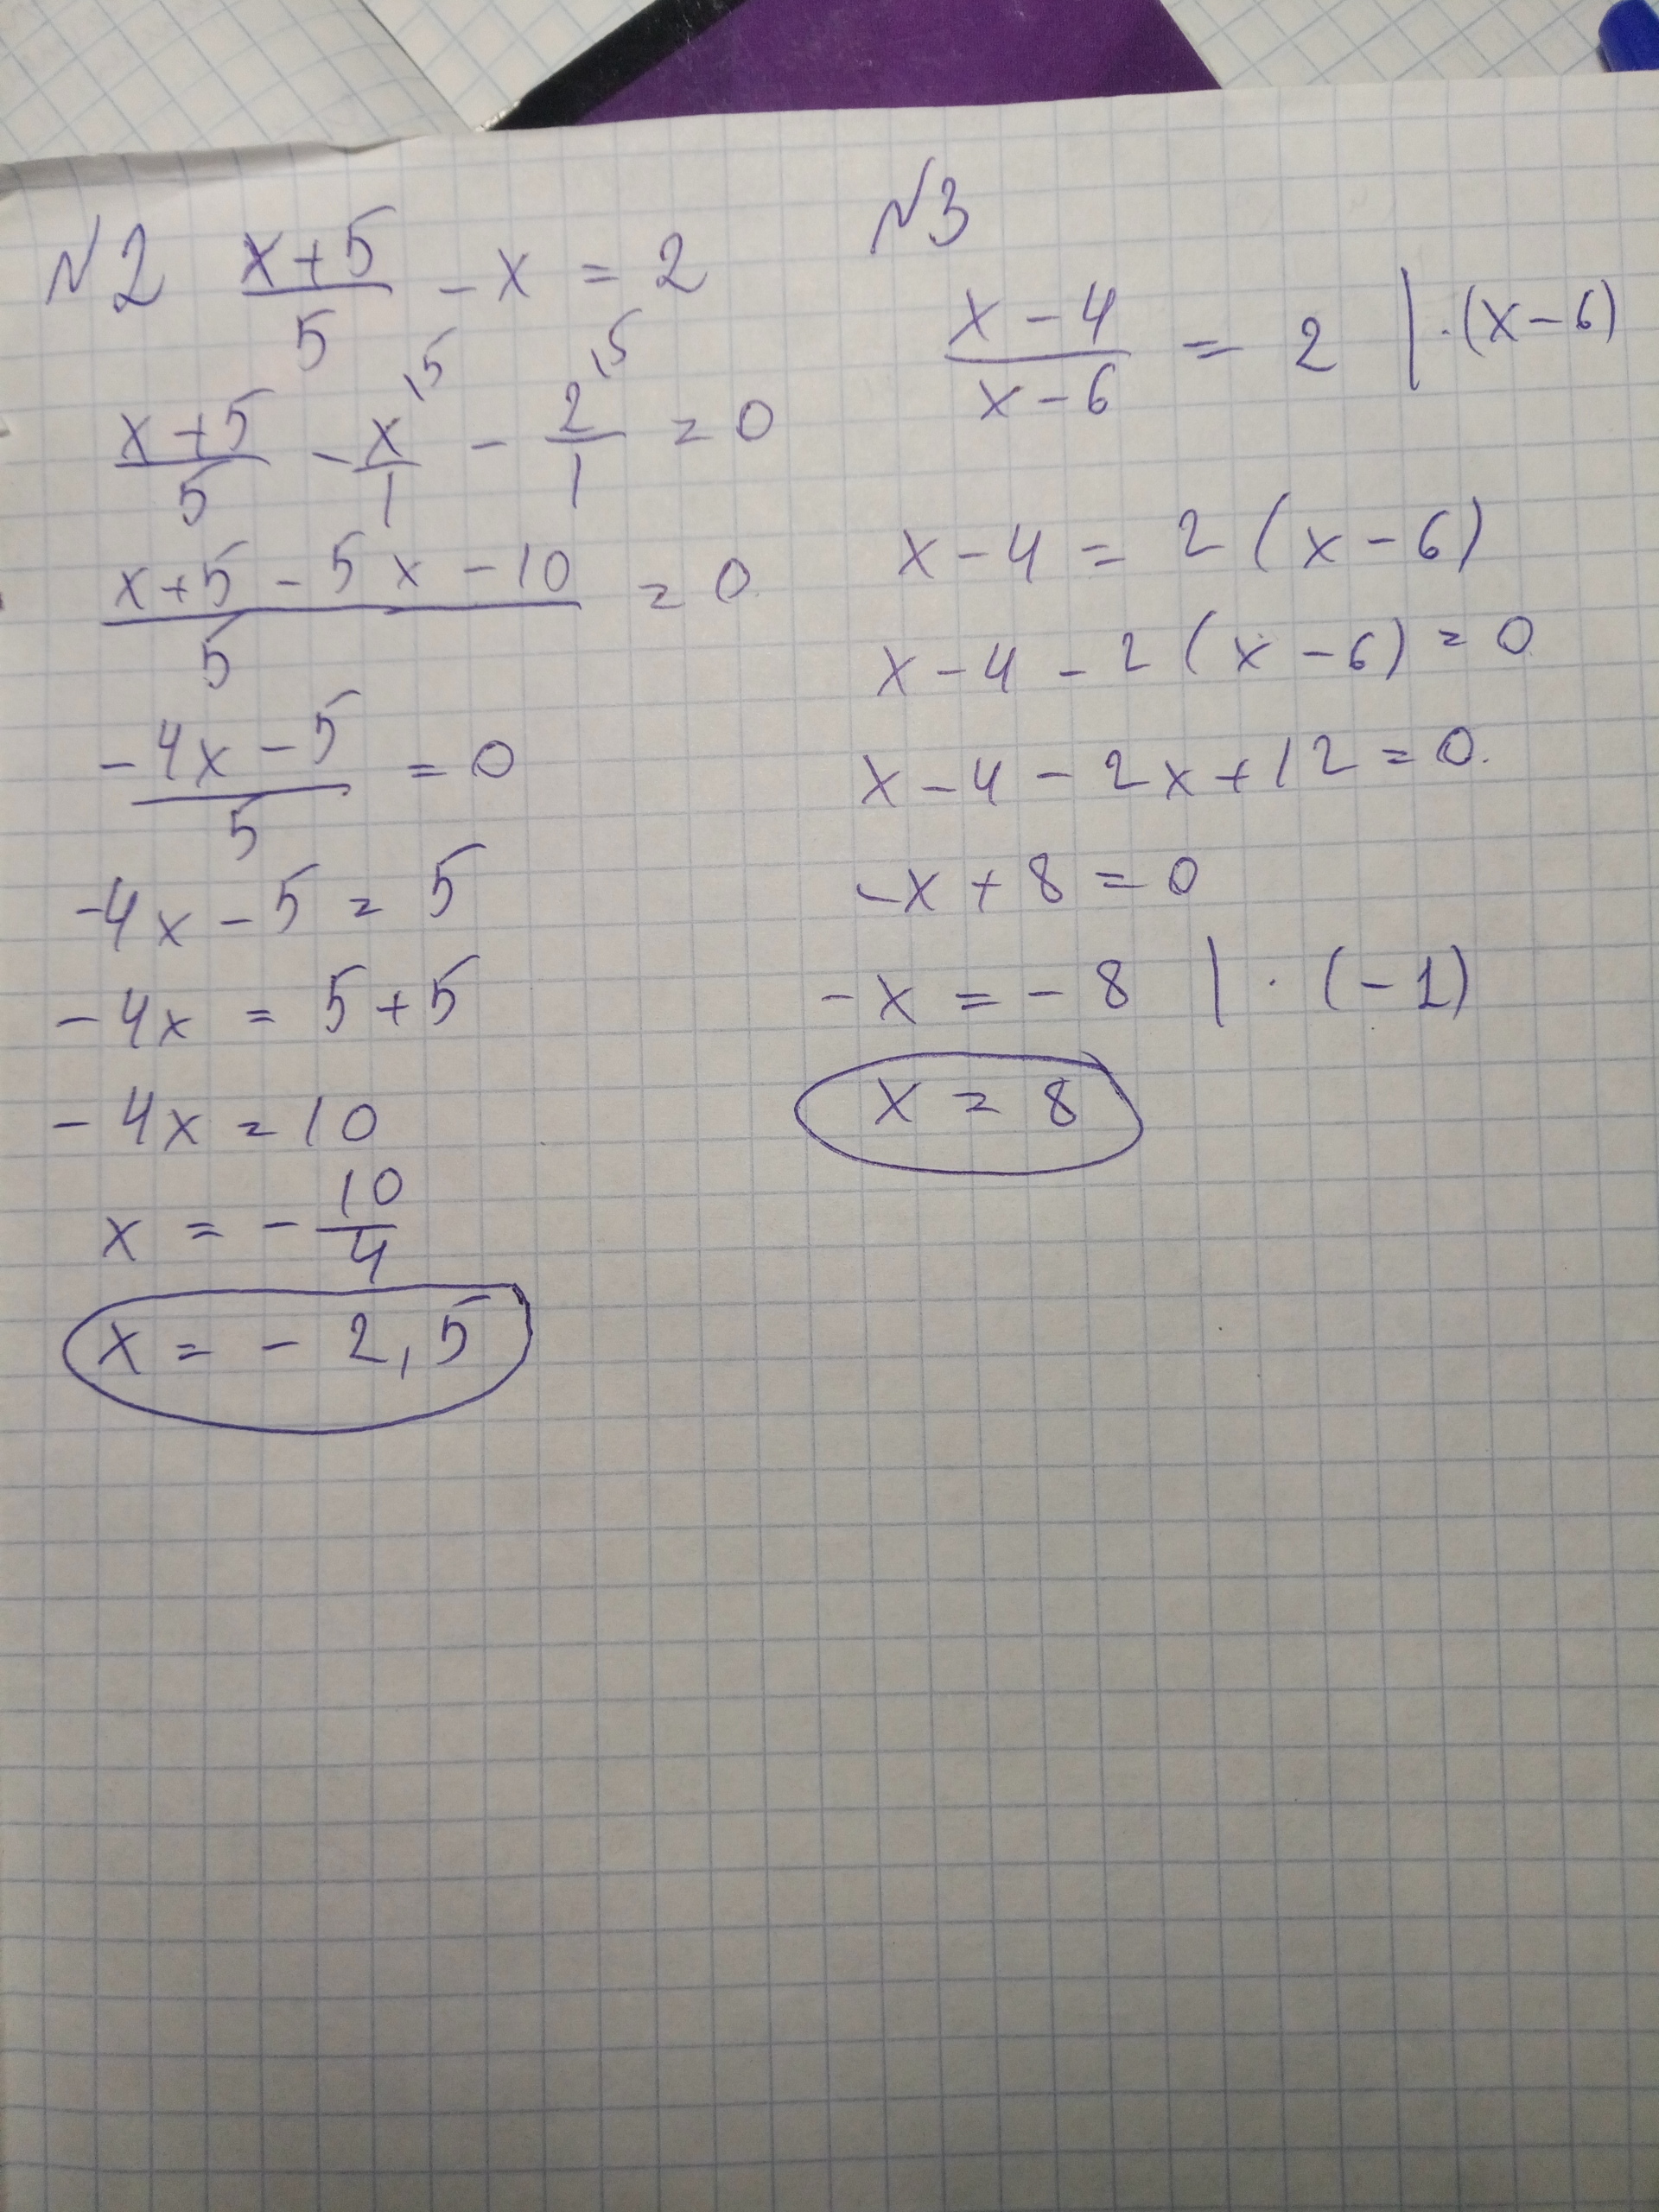 №2 (x+5)/5 - x = 2
(x+5)/5 - x/1 ^5 - 2/1 ^5 = 0
(x+5-5x-10)/5 = 0
(-4x-5)/5 = 0
-4x-5 = 5
-4x = 5+5
-4x = 10
x = -10/4
x = -2,5
№3
(x-4)/(x-6) = 2 | ·(x-6)
x-4 = 2(x-6)
x-4-2(x-6) = 0
x-4-2x+12 = 0.
-x+8 = 0
-x = -8 | · (-1)
x = 8